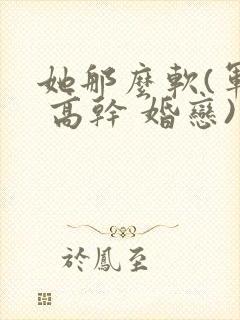 她那麼軟(軍
高幹 婚戀)
於鳳至